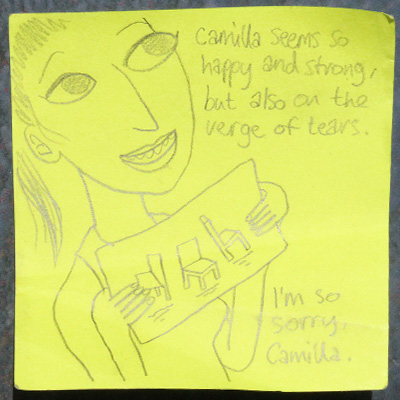 Camilla seems so
happy and strong,
but also on the
verge of tears.
I'm so
sorry,
Camilla.